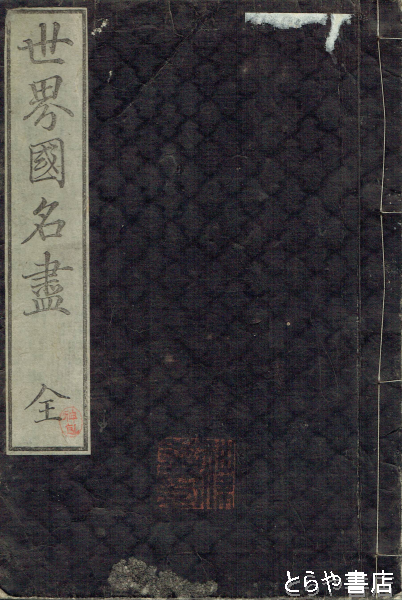 世界國名盡 全
とらや書店